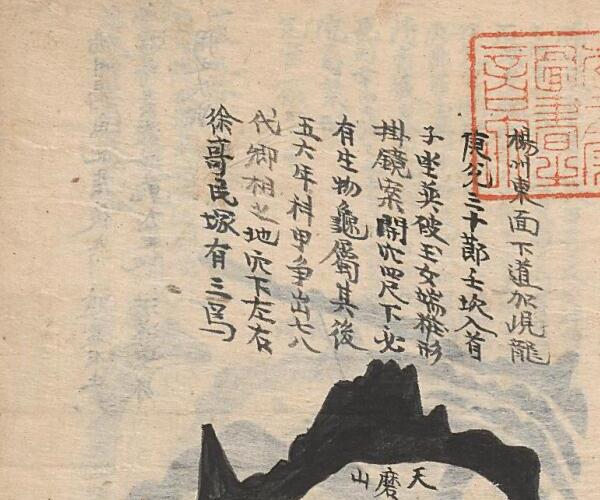 楊州東面下道加峴龍
庚兌三十節壬坎入首
子坐英破玉女端粧形
掛鏡案開穴四尺下必
有生物龜屬其後
五六年科甲爭出七八
代卿相之地穴下左右
徐哥民塚有三焉
天磨山